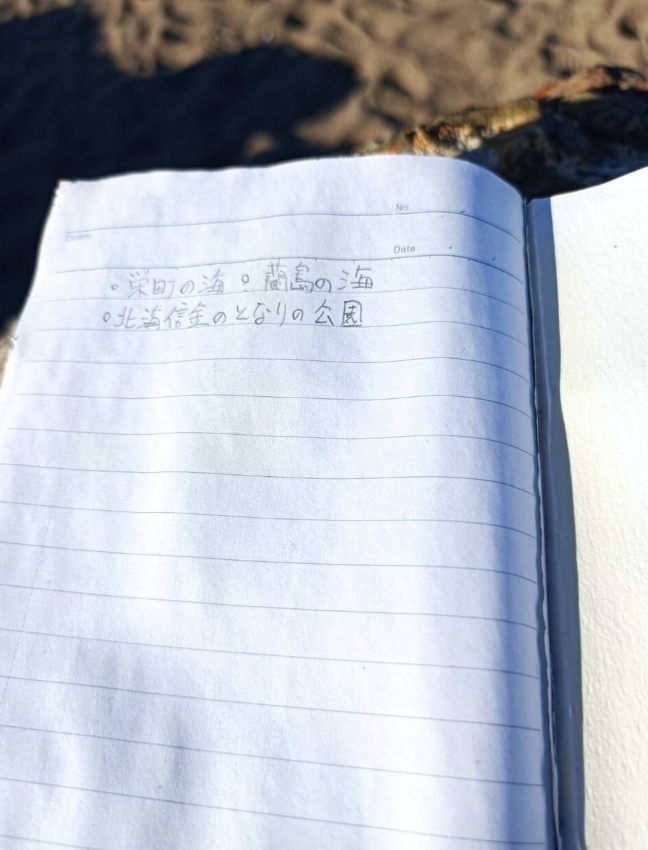 No.
Date
◦栄町の海 ◦蘭島の海
◦北海信金のとなりの公園